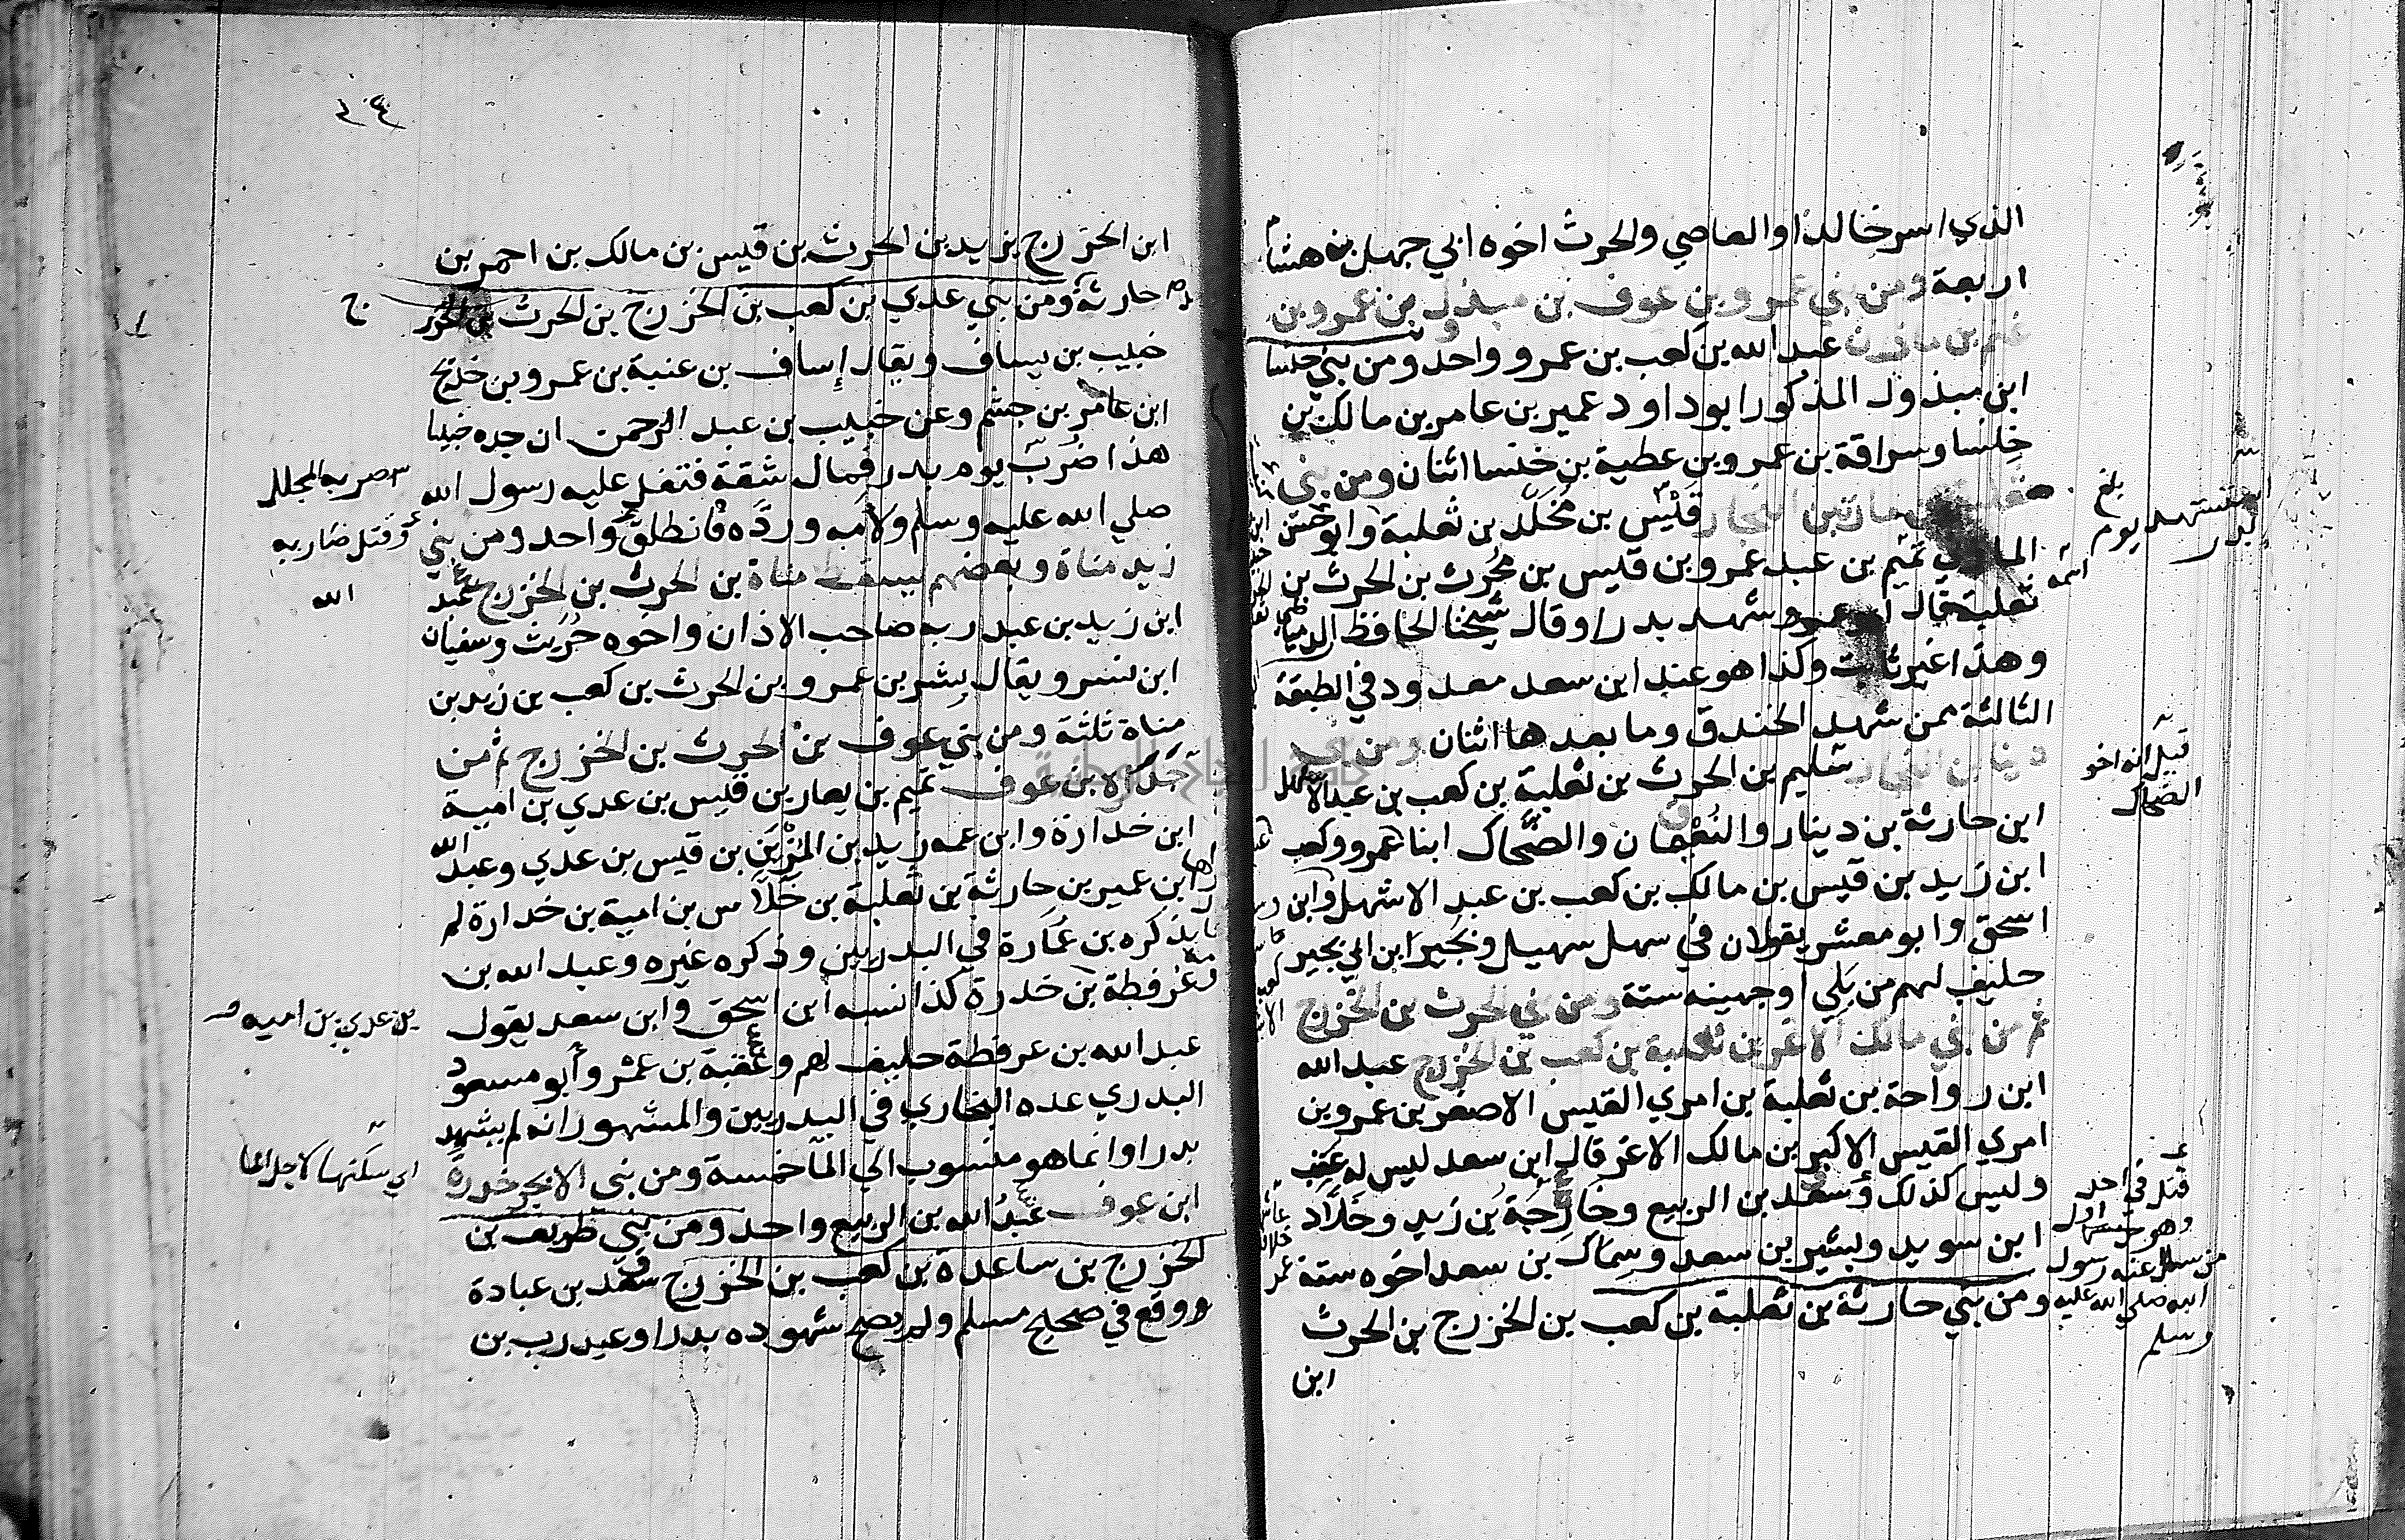 الذي اسر خالدا والعاصي والحرث اخوه ابي جهل بن هشام
اربعة ومن بني عمرو بن عوف بن مبذول بن عمرو بن
غنم بن مازن عبد الله بن كعب بن عمرو واحد ومن بني خنسا
ابن مبذول المذكور ابو داود عمير بن عامر بن مالك بن
خنسا وسراقة بن عمرو بن عطية بن خنسا اثنان ومن بني
ثعلبة بن مازن بن النجار قيس بن مخلد بن ثعلبة وابو حسن
المازني تميم بن عبد عمرو بن قيس بن محرث بن الحرث بن
ثعلبة قال ابو عمر وشهد بدرا وقال شيخنا الحافظ الدمياطي
وهذا غير ثابت وكذا هو عند ابن سعد معدود في الطبقة
الثالثة ممن شهد الخندق وما بعدها اثنان ومن بني
دينار بن النجار سليم بن الحرث بن ثعلبة بن كعب بن عبد الاشهل
ابن حارثة بن دينار والنعمان والضحاك ابنا عمرو وكعب
ابن زيد بن قيس بن مالك بن كعب بن عبد الاشهل وابن
اسحق وابو معشر يقولان في سهل سهيل وبجير ابن ابي بجير
حليف لهم من بلي او جهينه ستة ومن بني الحرث بن الخزرج
ثم من بني مالك الاغر بن ثعلبة بن كعب بن الخزرج عبد الله
ابن رواحة بن ثعلبة بن امري القيس الاصغر بن عمرو بن
امري القيس الاكبر بن مالك الاغر قال ابن سعد ليس له عقب
وليس كذلك وسعد بن الربيع وخارجة بن زيد وخلاد
ابن سويد وبشير بن سعد وسماك بن سعد اخوه ستة
ومن بني حارثة بن ثعلبة بن كعب بن الخزرج بن الحرث
ابن
بلغ
يوم
بدر
اسمه
قيل انه اخو
الضحاك
قتل في احد
وهو اول
من سال عنه رسول
الله صلي الله عليه
وسلم
٢٠٤
ابن الخزرج يزيد بن الحرث بن قيس بن مالك بن احمر بن
حارثة ومن بني عدي بن كعب بن الخزرج بن الحرث بن الخزرج
خبيب بن يساف ويقال إساف بن عنبة بن عمرو بن خديج
ابن عامر بن جشم وعن خبيب بن عبد الرحمن ان جده خبيبا
هذا ضرب يوم بدر فمال شقة فتفل عليه رسول الله
صلي الله عليه وسلم ولأمه وردّه فانطلق واحد ومن بني
زيد مناة وبعضهم يسقط مناة بن الحرث بن الخزرج عبد
ابن زيد بن عبد ربه صاحب الاذان واخوه حريث وسفيان
ابن نسر ويقال بشر بن عمرو بن الحرث بن كعب بن زيد بن
مناة ثلثة ومن بني عوف بن الحرث بن الخزرج ثم من
جدارة بن عوف تميم بن يعار بن قيس بن عدي بن امية
ابن خدارة وابن عمه زيد بن المزين بن قيس بن عدي وعبد الله
ابن عمير بن حارثة بن ثعلبة بن خلاس بن امية بن خدارة لم
يذكره بن عمارة في البدريين وذكره غيره وعبد الله بن
عرفطة بن خدرة كذا نسبه ابن اسحق وابن سعد يقول
عبد الله بن عرفطة حليف لهم وعقبة بن عمرو أبو مسعود
البدري عده البخاري في البدريين والمشهور انه لم يشهد
بدرا وانما هو منسوب الي الما خمسة ومن بني الابجر خدرة
ابن عوف عبد الله بن الربيع واحد ومن بني طريف بن
الخزرج بن ساعدة بن كعب بن الخزرج سعد بن عبادة
ووقع في صحيح مسلم ولم يصح شهوده بدرا وعبد رب بن
وقتل ضاربه
الله
بن عدي بن اميه
اي سكنها لاجل الما